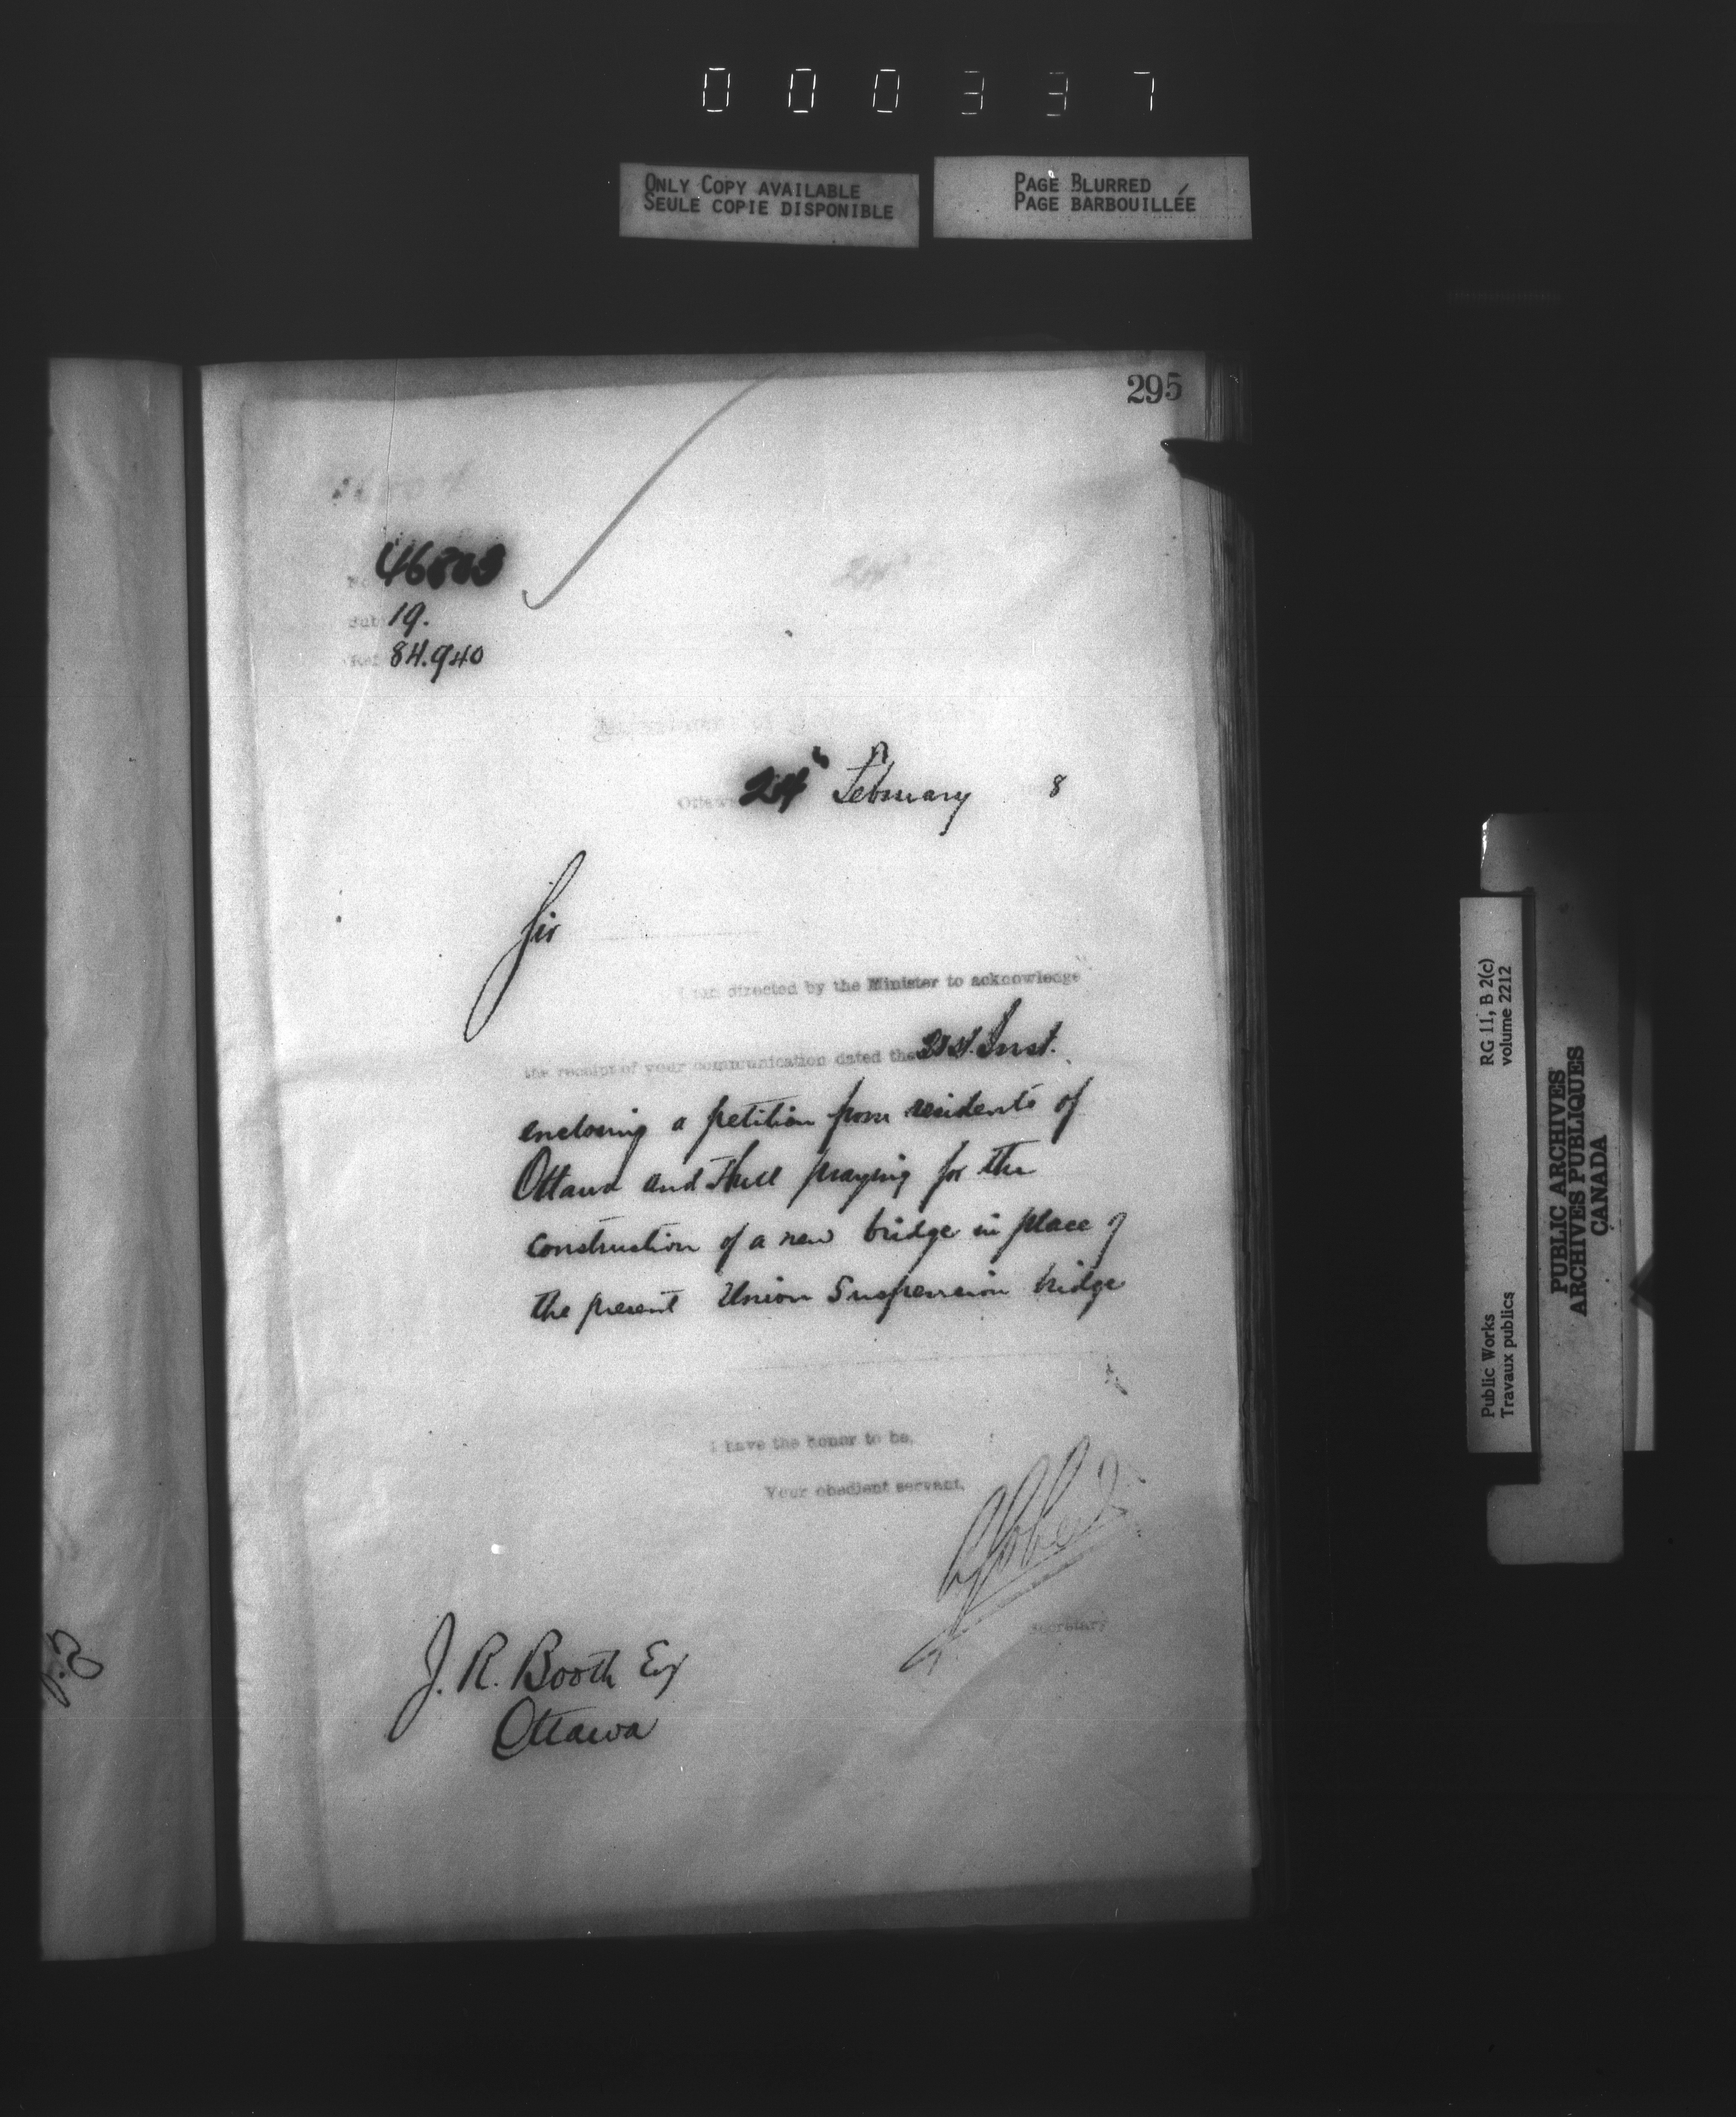 000337
ONLY COPY AVAILABLE
SEULE COPIE DISPONIBLE
PAGE BLURRED
PAGE BARBOUILLÉE
295
Sub 19.
84.940
Ottawa 24" February 8
Sir
directed by the Minister to acknowledge
the receipt of your communication dated the 21st. Inst.
enclosing a petition from residents of
Ottawa and Hull praying for the
construction of a new bridge in place of
the present Union Suspension bridge
I have the honor to be,
Your obedient servant,
Gobeil
Secretary
J. R. Booth Esq
Ottawa
RG 11, B 2(c)
volume 2212
Public Works
Travaux publics
PUBLIC ARCHIVES
ARCHIVES PUBLIQUES
CANADA